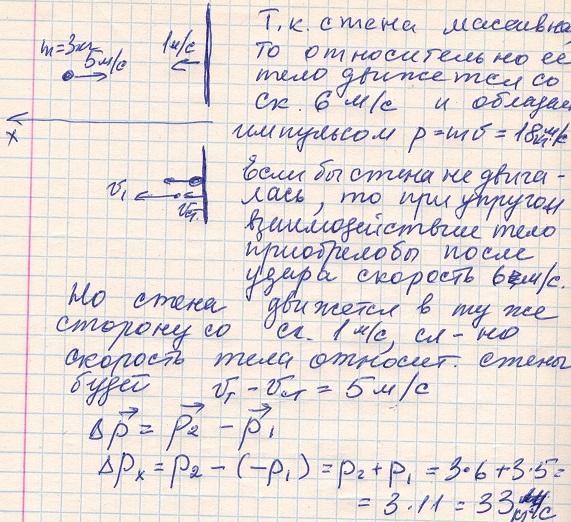 m=3кг
5м/с
1м/с
x
Т.к. стена массивна,
то относительно её
тело движется со
ск. 6 м/с и обладает
импульсом p=mv=18 кг·м/с
v₁
vст.
Если бы стена не двига-
лась, то при упругом
взаимодействие тело
приобрело бы после
удара скорость 6 м/с.
Но стена движется в ту же
сторону со ск. 1 м/с, сл-но
скорость тела относит. стены
будет vт - vст = 5 м/с
Δp⃗ = p⃗₂ - p⃗₁
Δpₓ = p₂ - (-p₁) = p₂ + p₁ = 3·6 + 3·5 =
= 3·11 = 33